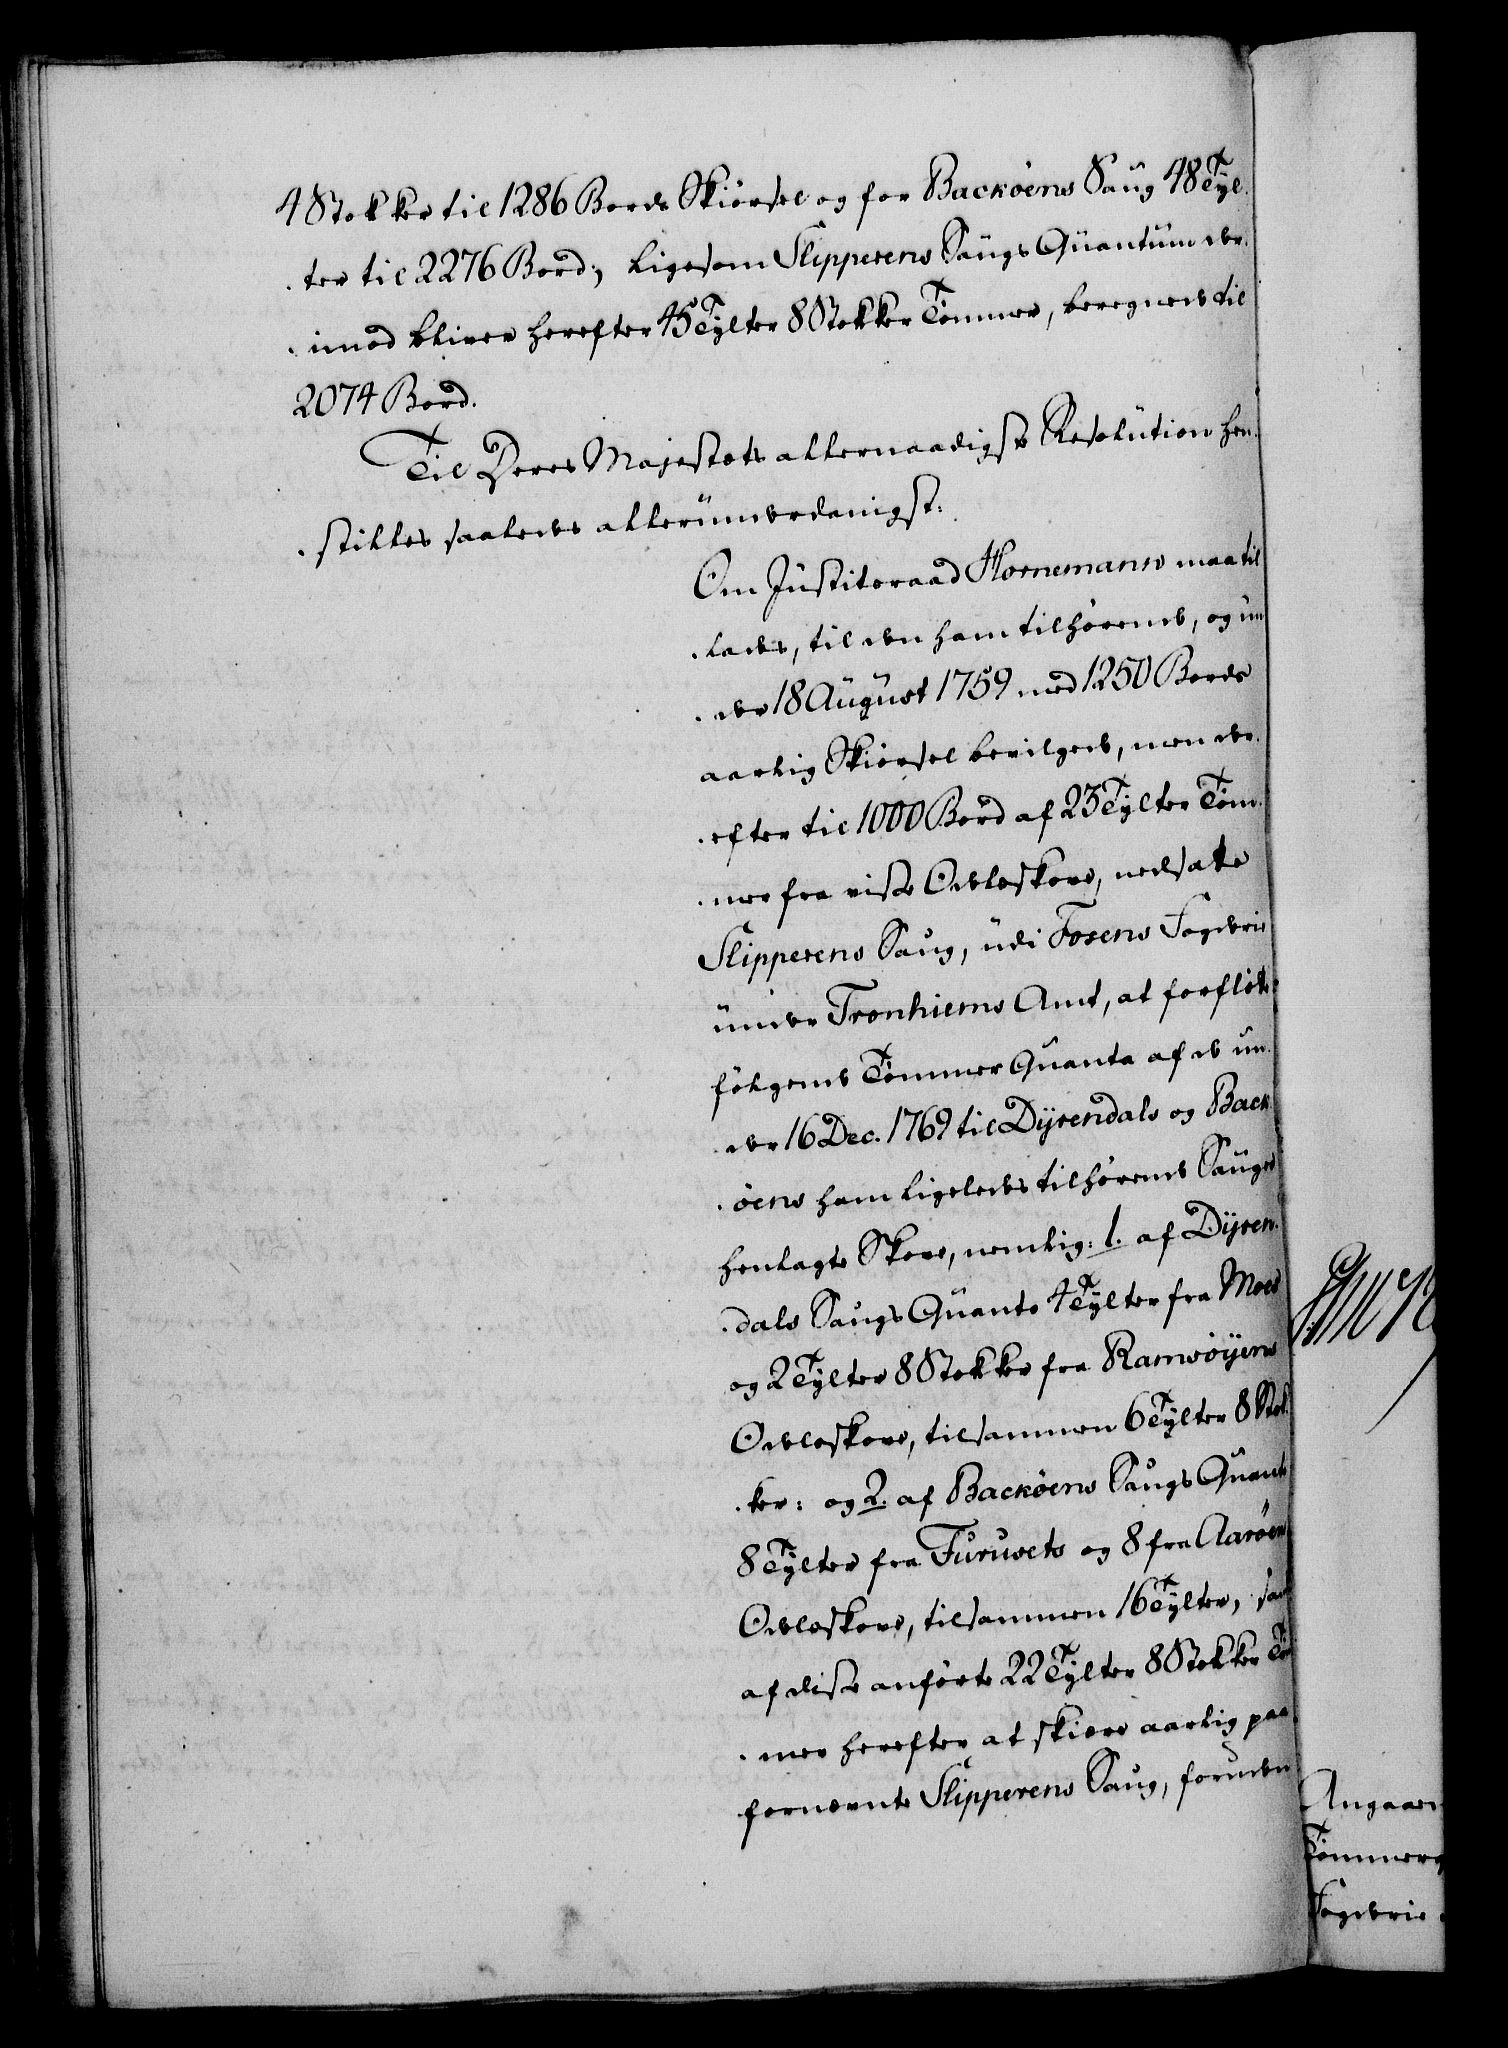 4 Stokker til 1286 Bords Skiørsel og for Backøens Saug 48 Tyl-
ter til 2276 Bord; ligesom Slipperens Saugs Quantum der-
imod bliver herefter 45 Tylter 8 Stokker Tømmer, beregnede til
2074 Bord.
Til Deres Majestæts allernaadigste Resolution hen-
stilles saaledes allerunderdanigst:
Om Justitsraad Hornemann maa til-
lades, til den ham tilhørende, og un-
der 18 August 1759 med 1250 Bords
aarlig Skiørsel bevilgede, men der-
efter til 1000 Bord af 23 Tylter Tøm-
mer fra visse Odelsskove, nedsatte
Slipperens Saug, udi Fosens Fogderie
under Tronhiems Amt, at forfløtte
følgende Tømmer Quanta af de un-
der 16 Dec. 1769 til Dyrendals og Back-
øens ham ligeledes tilhørende Sauger
henlagte Skove, nemlig: 1. af Dyren-
dals Saugs Quanto 4 Tylter fra Moes
og 2 Tylter 8 Stokker fra Ramsøyens
Odelsskove, tilsammen 6 Tylter 8 Stok-
ker: og 2. af Backøens Saugs Quanto
8 Tylter fra Furusets og 8 fra Aarøens
Odelsskove, tilsammen 16 Tylter, samt
af disse anførte 22 Tylter 8 Stokker Tøm-
mer herefter at skiære aarlig paa
fornevnte Slipperens Saug, foruden
Angaaen
Tømmerq
Fogderie